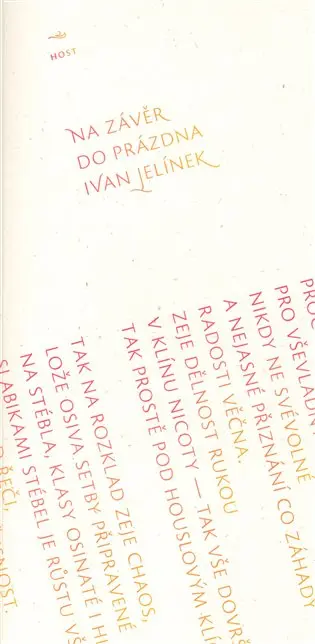 HOST
NA ZÁVĚR
DO PRÁZDNA
IVAN JELÍNEK
PRO VŠEVLADN
NIKDY NE SVÉVOLNÉ
A NEJASNÉ PŘIZNÁNÍ CO ZÁHADY
RADOSTI VĚČNA.
ZEJE DĚLNOST RUKOU
V KLÍNU NICOTY — TAK VŠE DOVR
TAK PROSTĚ POD HOUSLOVÝM KLÍ
TAK NA ROZKLAD ZEJE CHAOS,
LOŽE OSIVA SETBY PŘIPRAVENÉ
NA STÉBLA, KLASY OSINATÉ I H
SLABIKAMI STÉBEL JE RŮSTU VŠ
ŘEČI,